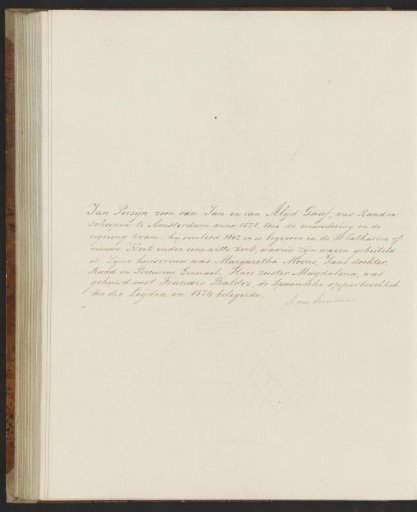 Jan Persijn, zoon van Jan en van Alijd Graaf, was Raad en
schepen te Amsterdam anno 1578, toen de verandering in de
regering kwam; hij overleed 1602 en is begraven in de St Catharina of
nieuwe Kerk onder een witte zerk, waarin zijn wapen gebeiteld
is. Zijne huisvrouw was Margaretha Moons, Jans dochter,
Raad en Procureur Generaal. Hare zuster Magdalena, was
gehuwd met Francois Baldez, de Spaansche opperbevelheb-
ber die Leyden in 1574 belegerde.